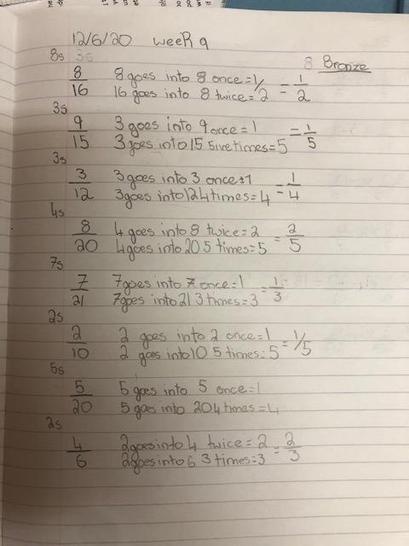 12/6/20 week 9
8s 3s 8 Bronze
8/16 8 goes into 8 once=1/ = 1/2
16 goes into 8 twice/2
3s
9/15 3 goes into 9 once=1 = 1/5
3 goes into 15 five times=5
3s
3/12 3 goes into 3 once=1 = 1/4
3 goes into 12 4 times=4
4s
8/20 4 goes into 8 twice=2 = 2/5
4 goes into 20 5 times=5
7s
7/21 7 goes into 7 once=1 = 1/3
7 goes into 21 3 times=3
2s
2/10 2 goes into 2 once=1 = 1/5
2 goes into 10 5 times=5
5s
5/20 5 goes into 5 once=1
5 goes into 20 4 times=4
2s
4/6 2 goes into 4 twice=2 = 2/3
2 goes into 6 3 times=3